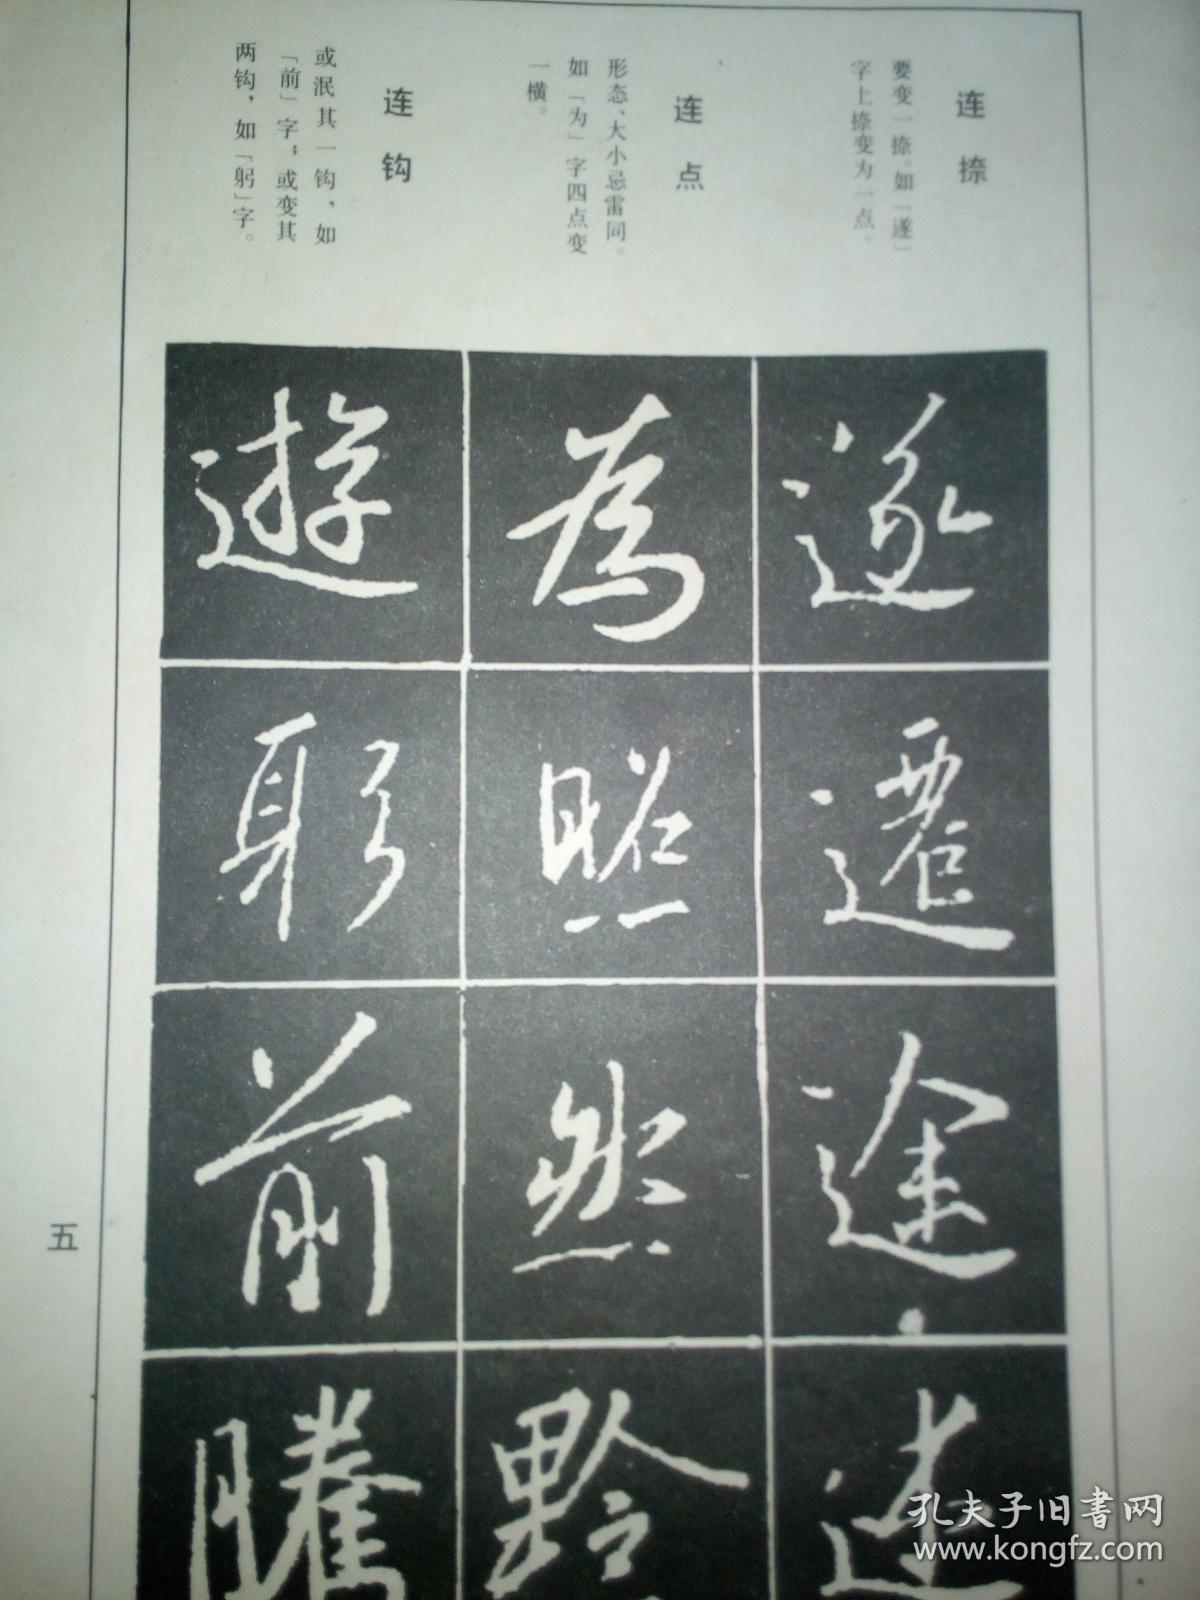 连捺
要变一捺。如「遂」
字上捺变为一点。
连点
形态、大小忌雷同。
如「为」字四点变
一横。
连钩
或泯其一钩，如
「前」字；或变其
两钩，如「躬」字。
遂
遷
途
為
照
然
黔
遊
躬
前
騰
五
孔夫子旧书网
www.kongfz.com